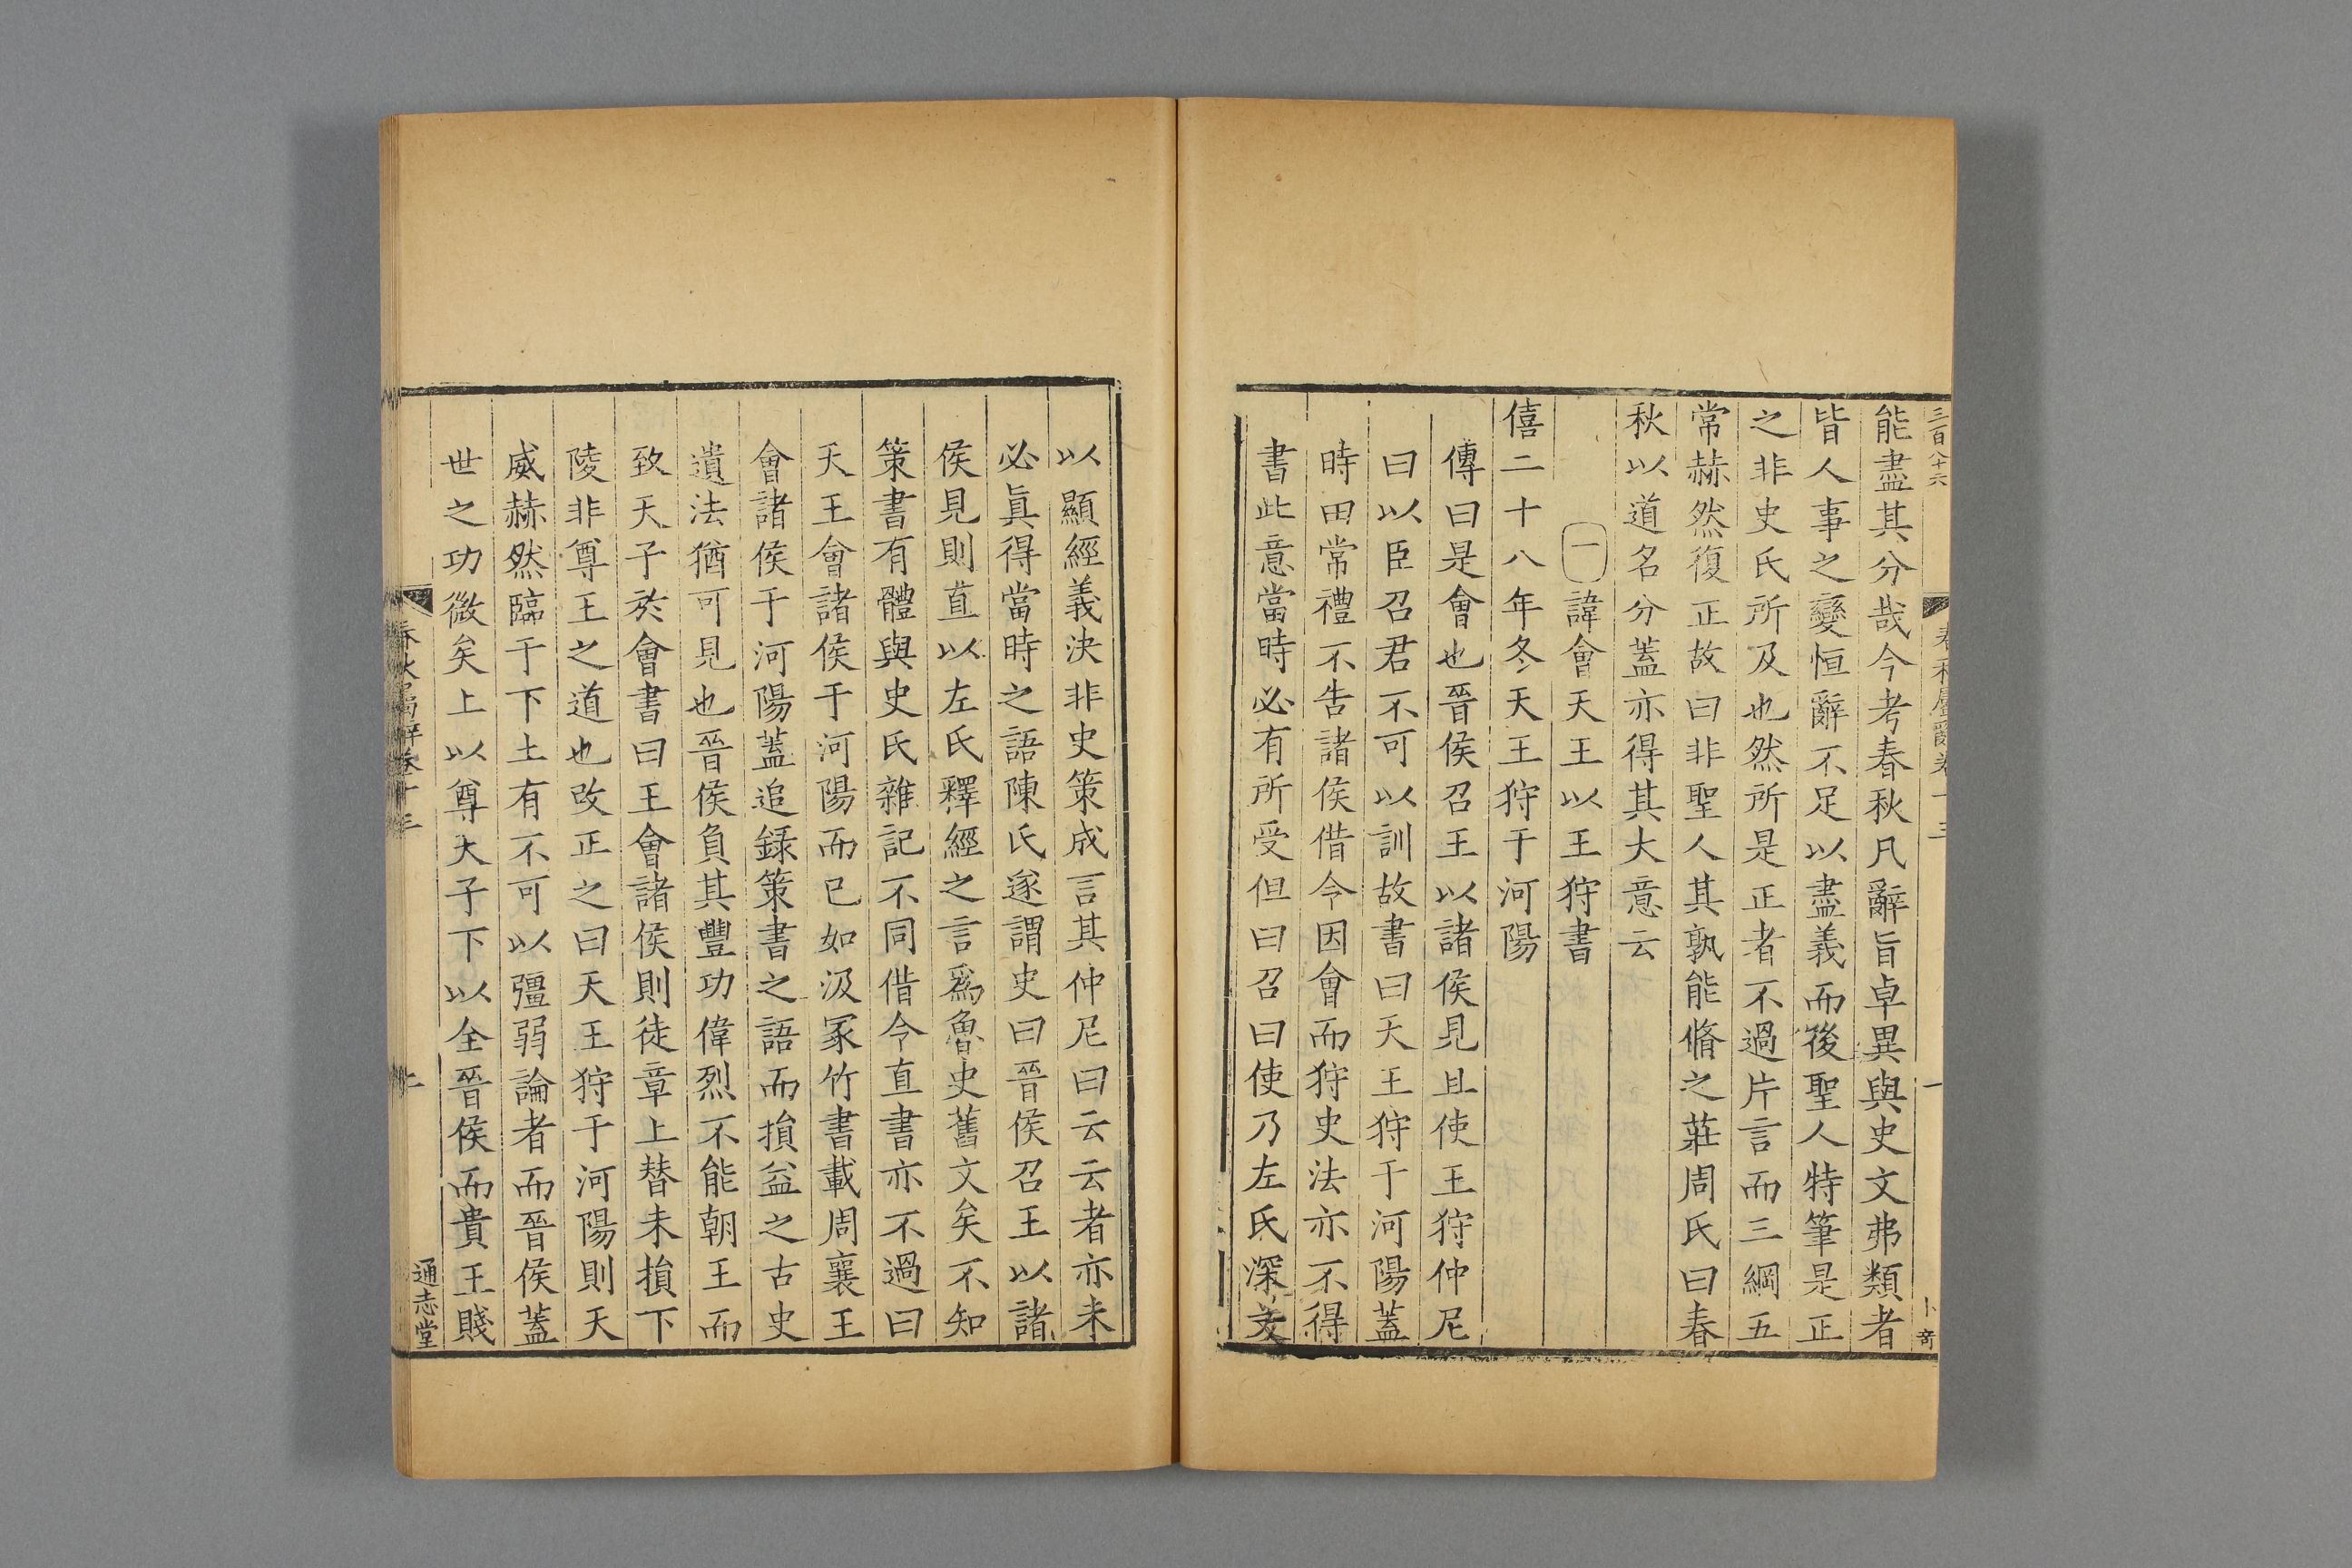 三百八十六
春秋屬辭卷十三
一
能盡其分哉今考春秋凡辭旨卓異與史文弗類者
皆人事之變恒辭不足以盡義而後聖人特筆是正
之非史氏所及也然所是正者不過片言而三綱五
常赫然復正故曰非聖人其孰能脩之莊周氏曰春
秋以道名分蓋亦得其大意云
一諱會天王以王狩書
僖二十八年冬天王狩于河陽
傳曰是會也晉侯召王以諸侯見且使王狩仲尼
曰以臣召君不可以訓故書曰天王狩于河陽蓋
時田常禮不告諸侯借令因會而狩史法亦不得
書此意當時必有所受但曰召曰使乃左氏深文
以顯經義決非史策成言其仲尼曰云云者亦未
必眞得當時之語陳氏遂謂史曰晉侯召王以諸
侯見則直以左氏釋經之言爲魯史舊文矣不知
策書有體與史氏雜記不同借令直書亦不過曰
天王會諸侯于河陽而已如汲冢竹書載周襄王
會諸侯于河陽蓋追録策書之語而損益之古史
遺法猶可見也晉侯負其豐功偉烈不能朝王而
致天子於會書曰王會諸侯則徒章上替未損下
陵非尊王之道也改正之曰天王狩于河陽則天
威赫然臨于下土有不可以彊弱論者而晉侯蓋
世之功微矣上以尊天子下以全晉侯而貴王賤
春秋屬辭卷十三
二
通志堂